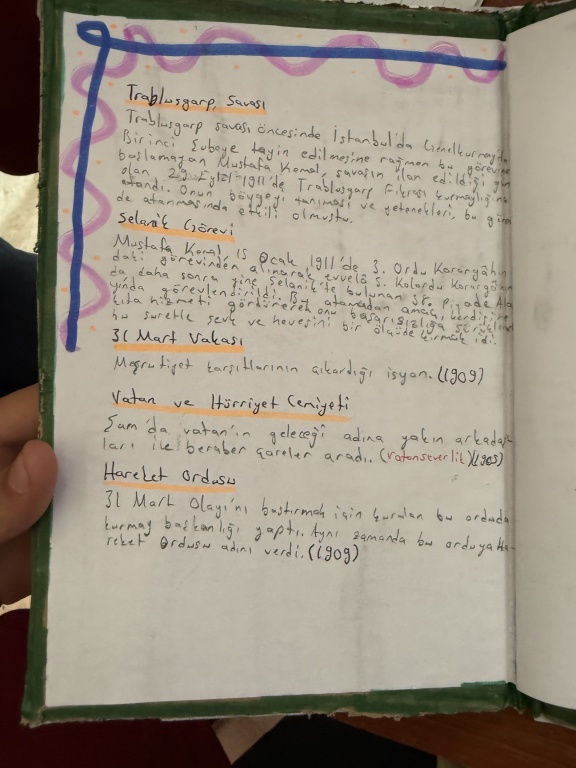 Trablusgarp Savası
Trablusgarp savası öncesinde İstanbul'da Genelkurmay'da
Birinci Şubeye tayin edilmesine rağmen bu görevine
başlamayan Mustafa Kemal, savaşın ilan edildiği gün
olan 29 Eylül 1911'de Trablusgarp Fıkrası kurmaylığına
atandı. Onun bölgeyi tanıması ve yetenekleri, bu göre
de atanmasında etkili olmuştu.
Selanik Görevi
Mustafa Kemal, 15 Ocak 1911'de 3. Ordu Karargâhın
daki görevinden alınarak evvelâ 5. Kolordu Karargâhın
da daha sonra yine Selanik'te bulunan 38. Piyade Ala
yında görevlendirildi. Bu atamadan amaç, kendisine
kıta hizmeti gördürerek onu başarısızlığa
bu suretle şevk ve hevesini bir ölçüde kırmak idi.
31 Mart Vakası
Meşrutiyet karşıtlarının çıkardığı isyan. (1909)
Vatan ve Hürriyet Cemiyeti
Şam'da vatan'ın geleceği adına yakın arkadaş-
ları ile beraber çareler aradı. (Vatanseverlik) (1905)
Hareket Ordusu
31 Mart Olayı'nı bastırmak için kurulan bu orduda
kurmay başkanlığı yaptı. Aynı zamanda bu orduya Ha-
reket Ordusu adını verdi. (1909)